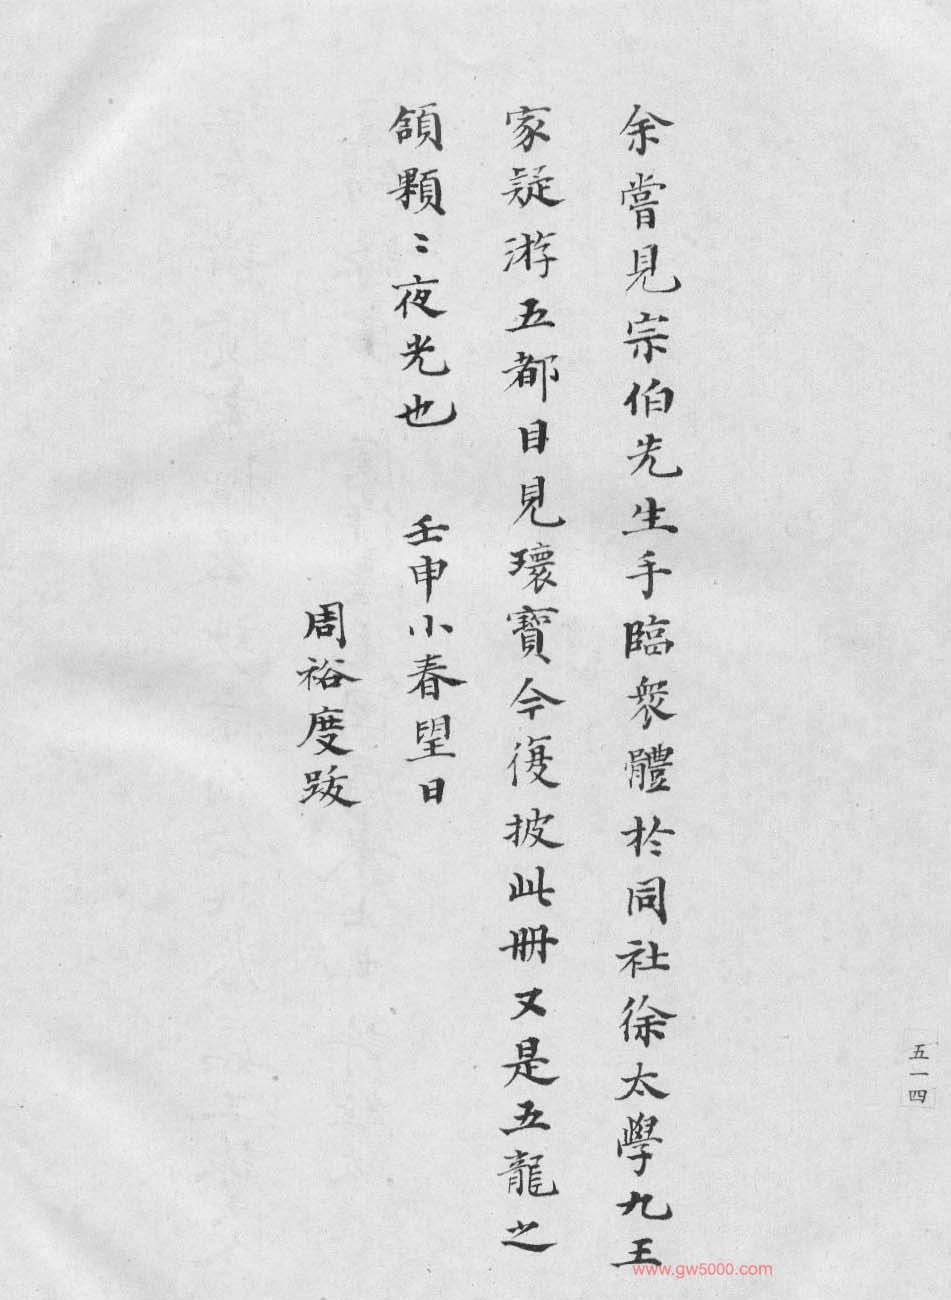 余嘗見宗伯先生手臨衆體於同社徐太學九王
家疑游五都目見瓌寶今復披此冊又是五龍之
頷顆〻夜光也　壬申小春望日
周裕度跋
五一四
www.gw5000.com